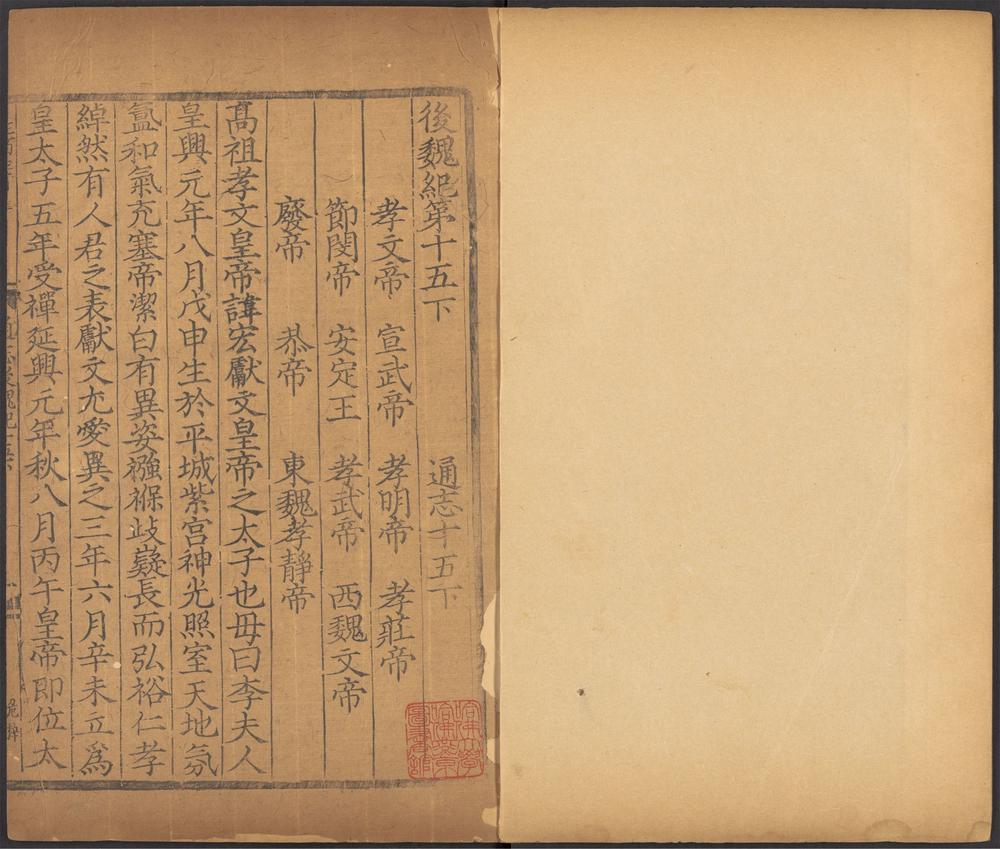 後魏紀第十五下 通志十五下
孝文帝 宣武帝 孝明帝 孝莊帝
節閔帝 安定王 孝武帝 西魏文帝
廢帝 恭帝 東魏孝靜帝
髙祖孝文皇帝諱宏獻文皇帝之太子也毋曰李夫人
皇興元年八月戊申生於平城紫宫神光照室天地氛
氳和氣充塞帝潔白有異姿襁褓歧嶷長而弘裕仁孝
綽然有人君之表獻文尤愛異之三年六月辛未立為
皇太子五年受禪延興元年秋八月丙午皇帝即位太